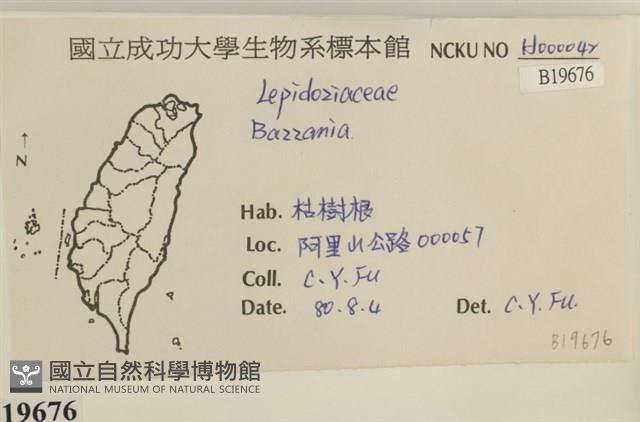 國立成功大學生物系標本館 NCKU NO H000042
B19676
Lepidoziaceae
Bazzania.
N
Hab. 枯樹根
Loc. 阿里山公路000057
Coll. C.Y.FU
Date. 80.8.4 Det. C.Y.FU.
B19676
國立自然科學博物館
NATIONAL MUSEUM OF NATURAL SCIENCE
19676